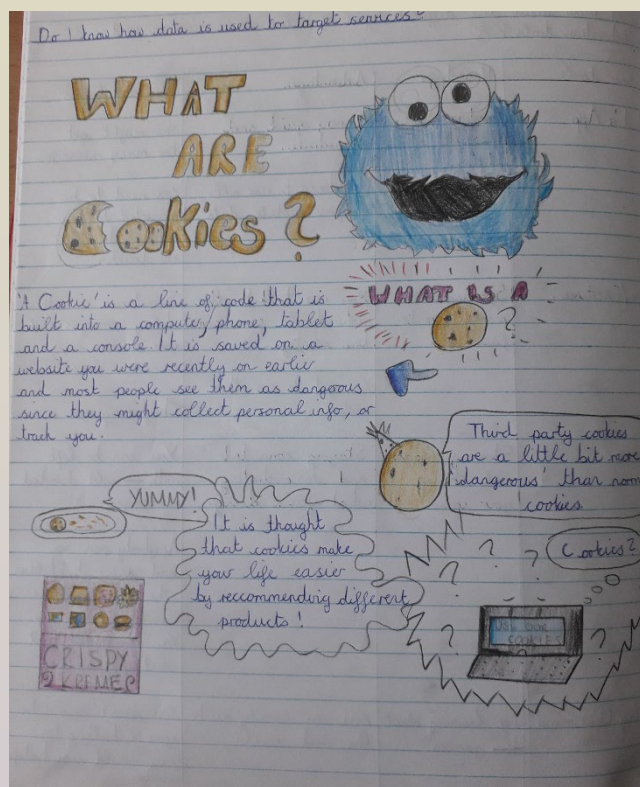 Do I know how data is used to target services?
WHAT
ARE
Cookies?
'A Cookie' is a line of code that is
built into a computer/phone, tablet
and a console. It is saved on a
website you were recently on earlier
and most people see them as dangerous
since they might collect personal info, or
track you.
WHAT IS A
?
Third party cookies
are a little bit more
'dangerous' than
cookies
YUMMY!
It is thought
that cookies make
your life easier
by reccommending different
products!
Cookies?
? ? ? ? ? ?
USE OUR
COOKIES
CRISPY
KREMEP